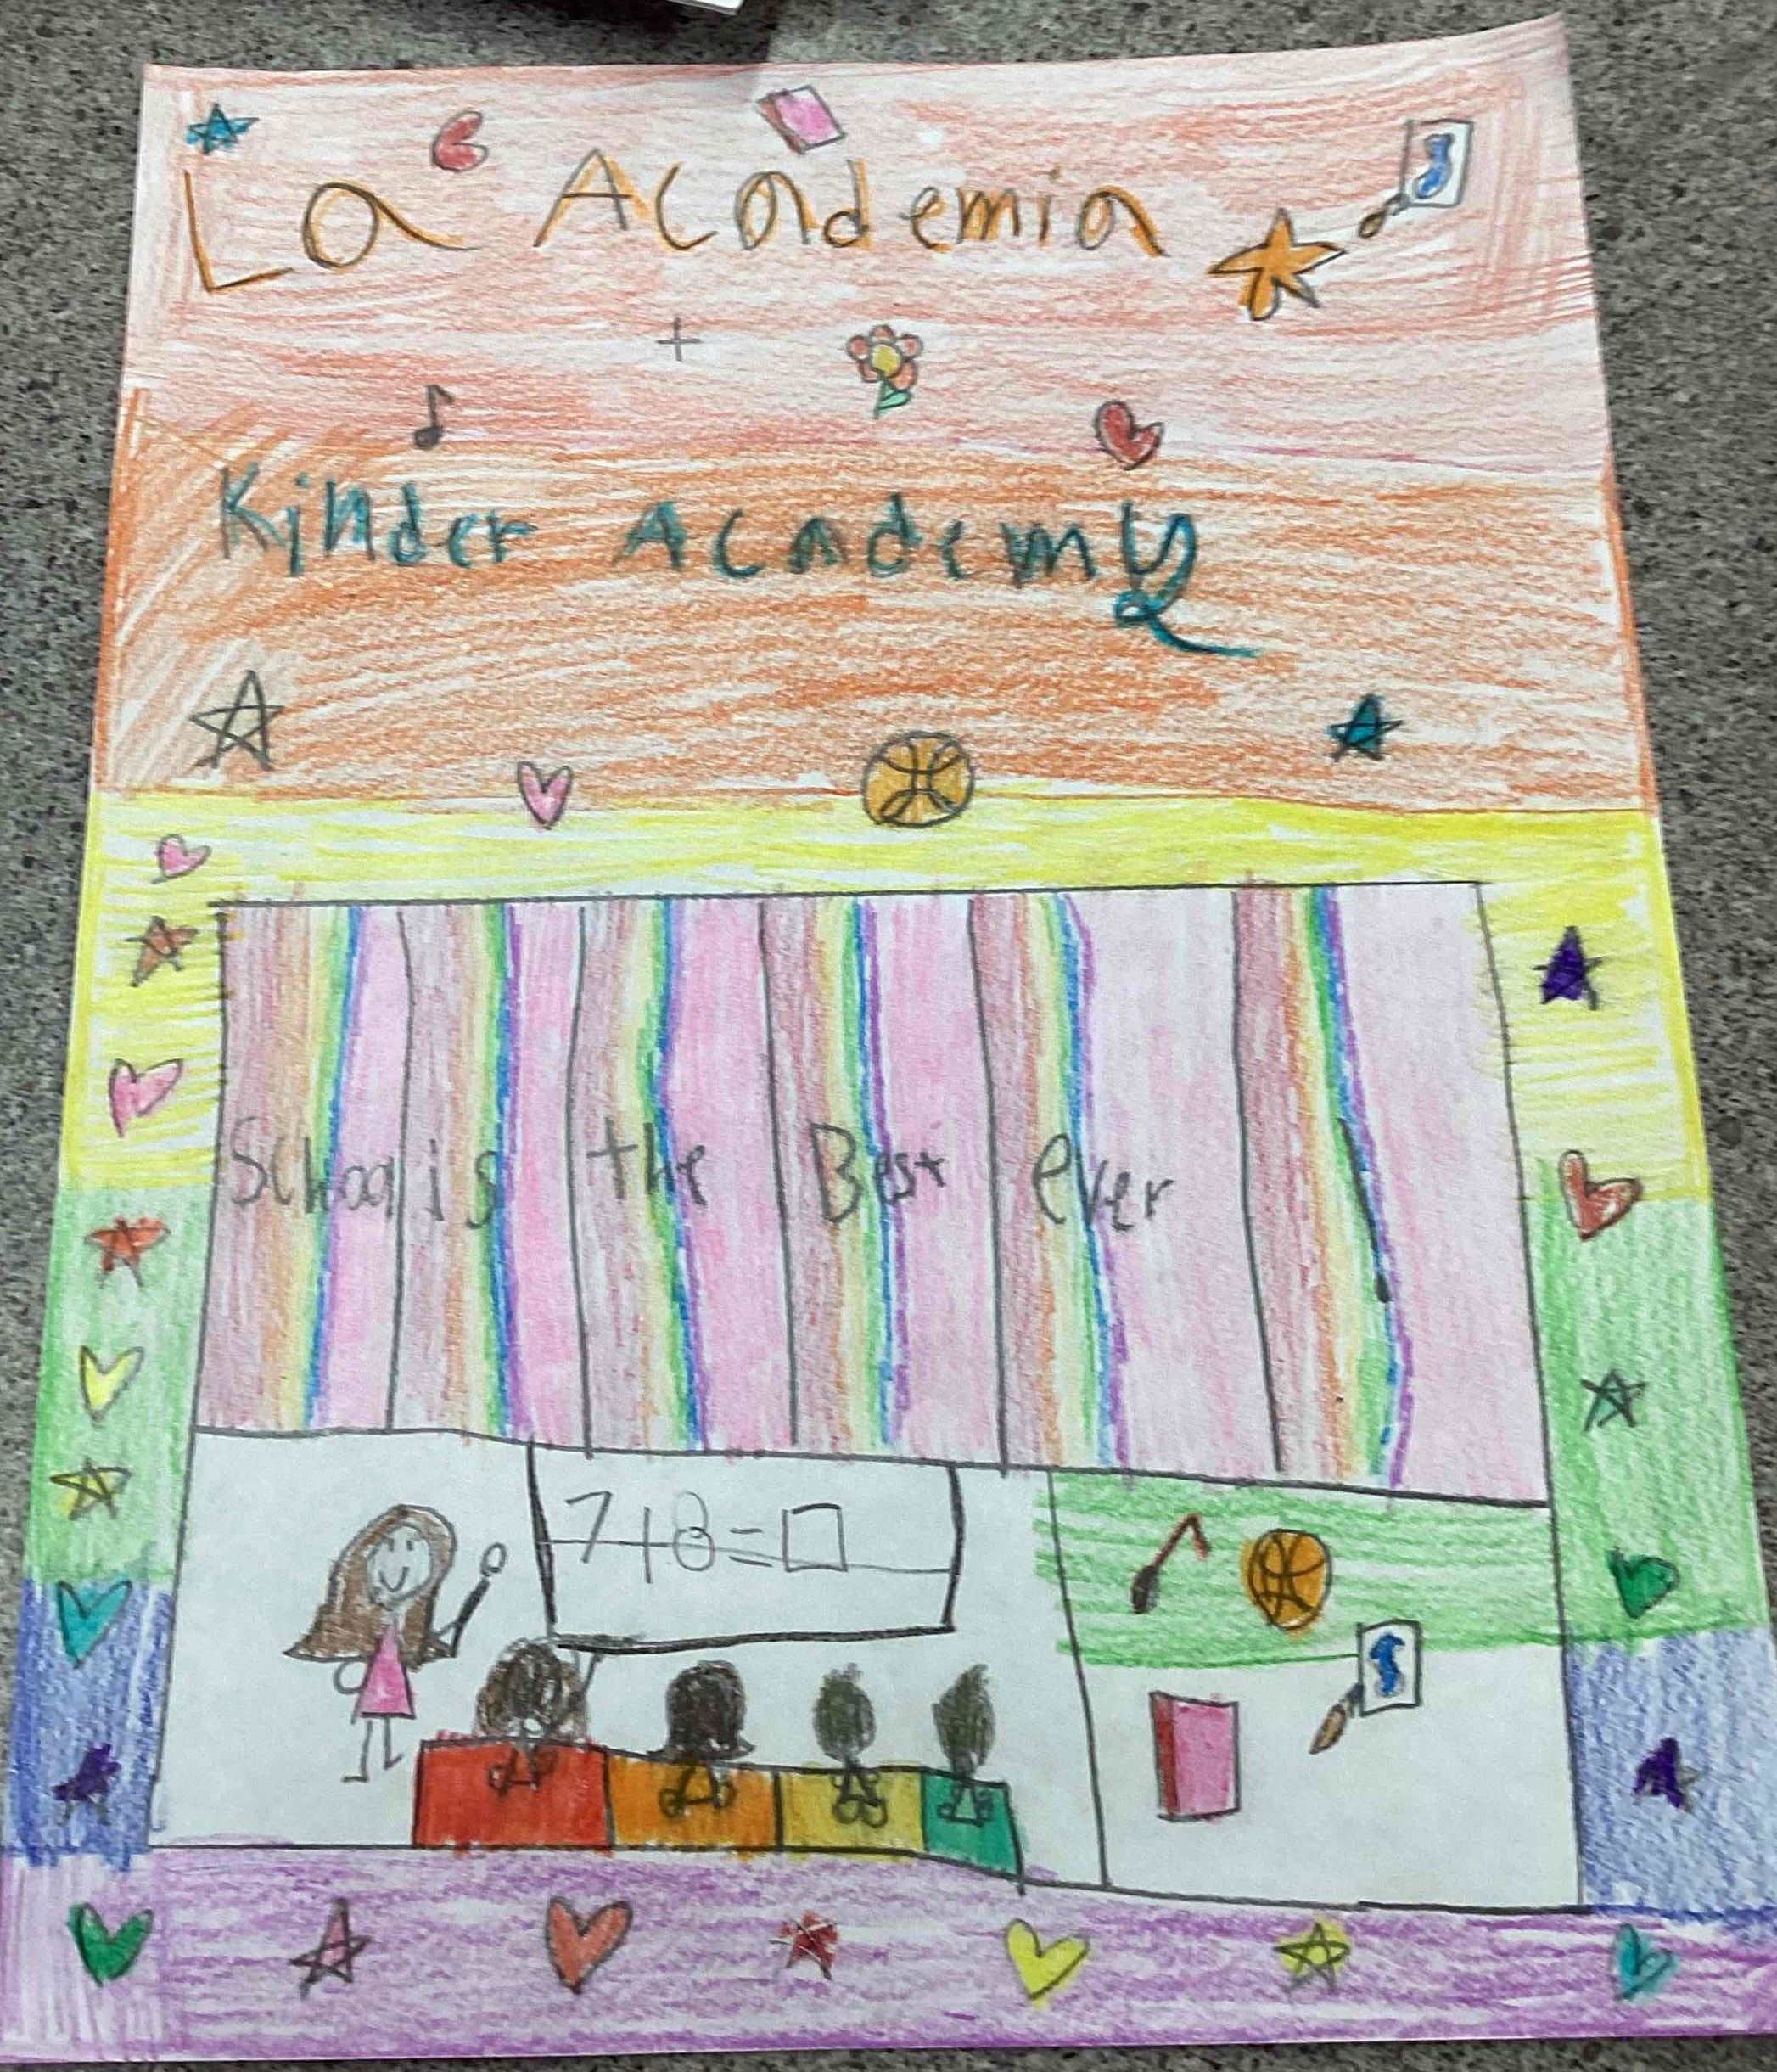 La Academia
+
Kinder Academy
School is the Best ever
7+8=□